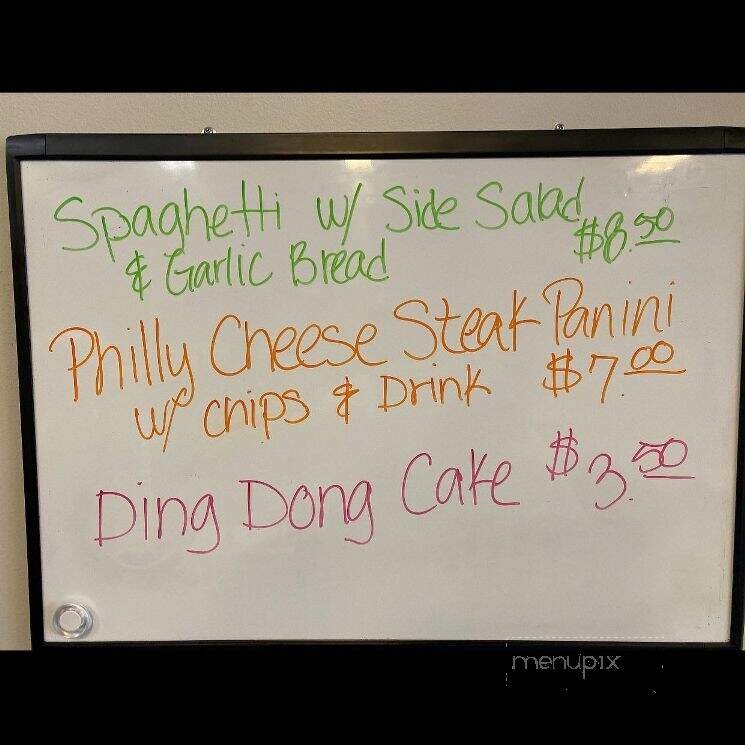 Spaghetti w/ Side Salad
& Garlic Bread $8.50
Philly Cheese Steak Panini
w/ chips & Drink $7.00
Ding Dong Cake $3.50
menupix